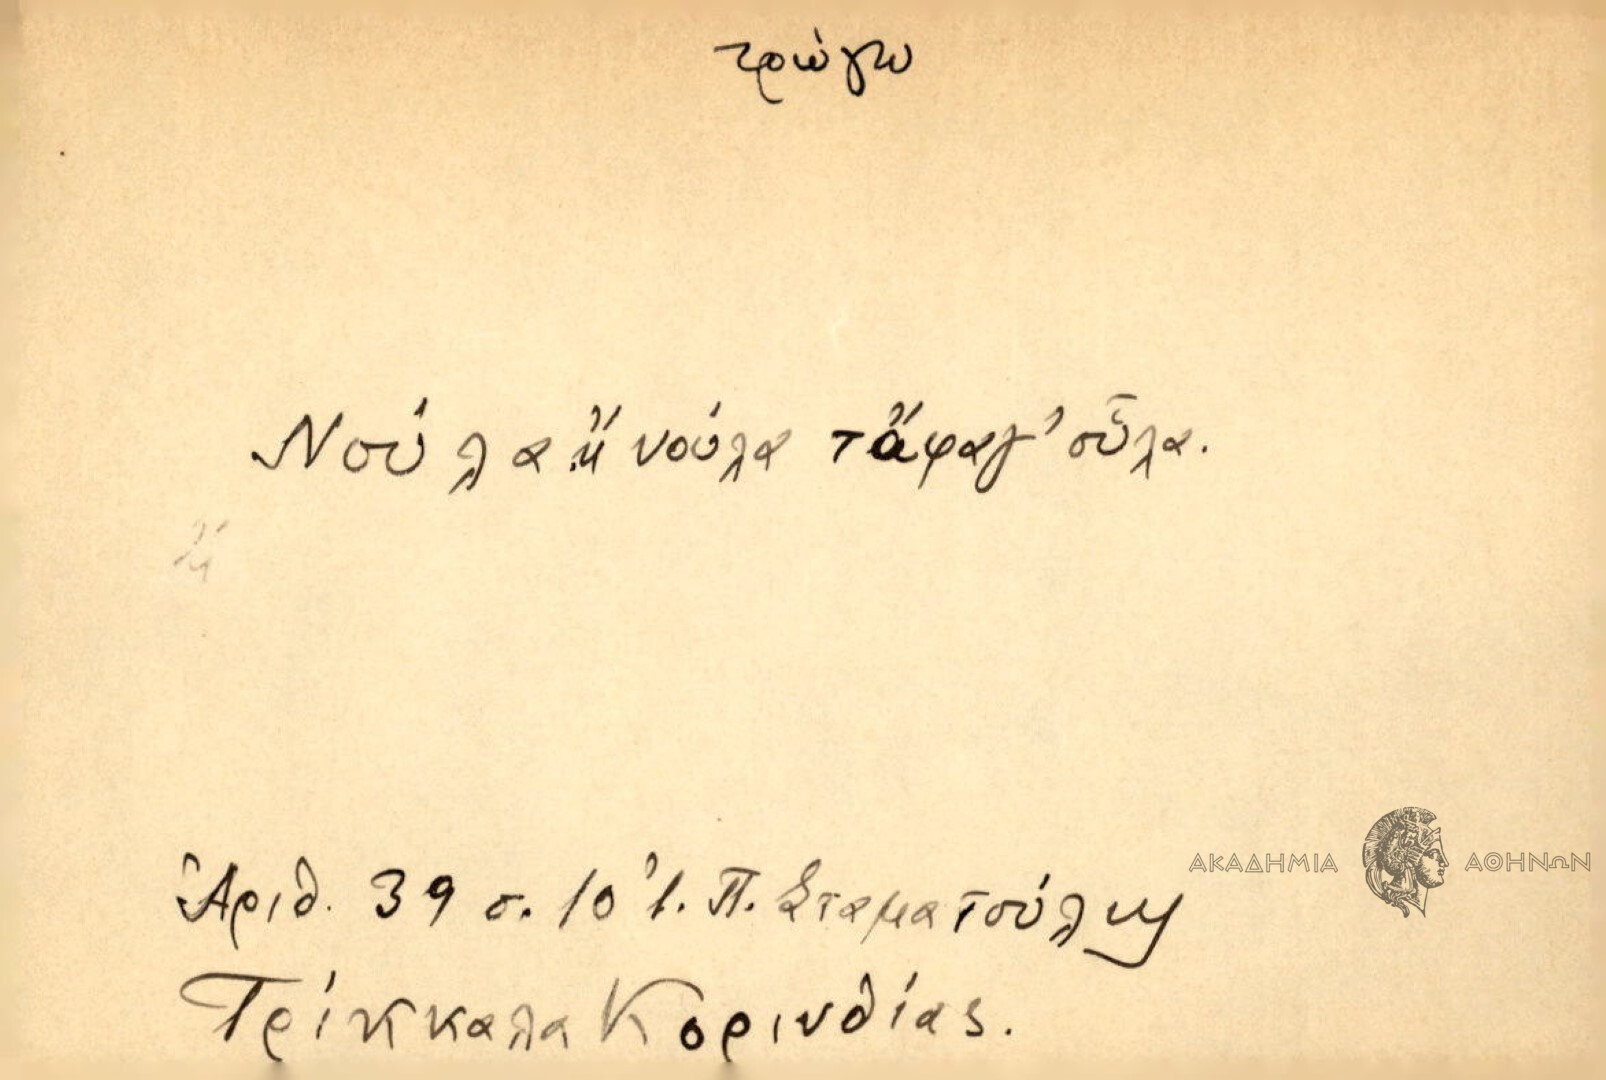 τρώγω
Νούλα κ̓́ νούλα τἄφαγ' οὗλα.
Ἀριθ. 39 σ. 10 Ἰ. Π. Σταματούλη
Τρίκκαλα Κορινθίας.
ΑΚΑΔΗΜΙΑ ΑΘΗΝΩΝ